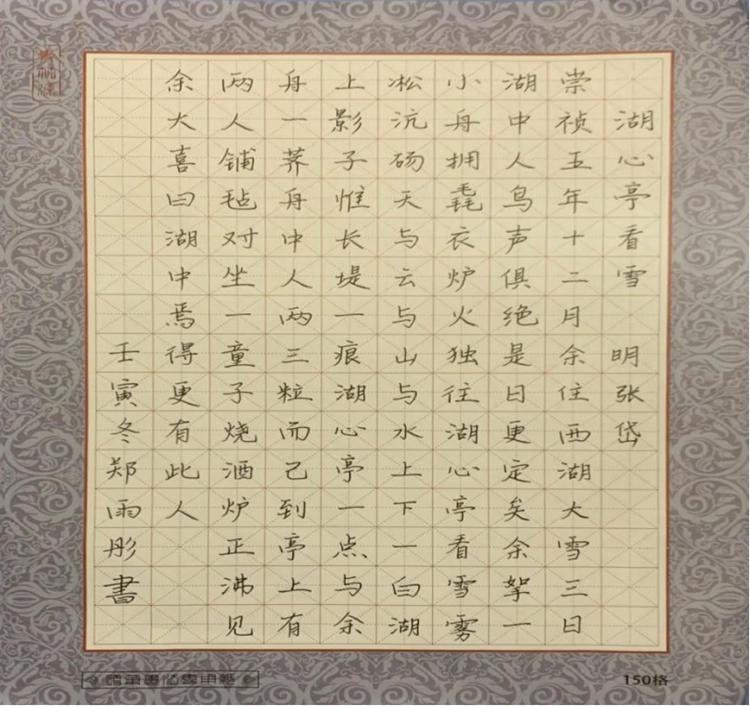 湖心亭看雪 明张岱
崇祯五年十二月余住西湖大雪三日
湖中人鸟声俱绝是日更定矣余挐一
小舟拥毳衣炉火独往湖心亭看雪雾
凇沆砀天与云与山与水上下一白湖
上影子惟长堤一痕湖心亭一点与余
舟一荠舟中人两三粒而己到亭上有
两人铺毡对坐一童子烧酒炉正沸见
余大喜曰湖中焉得更有此人
壬寅冬郑雨彤書
150格